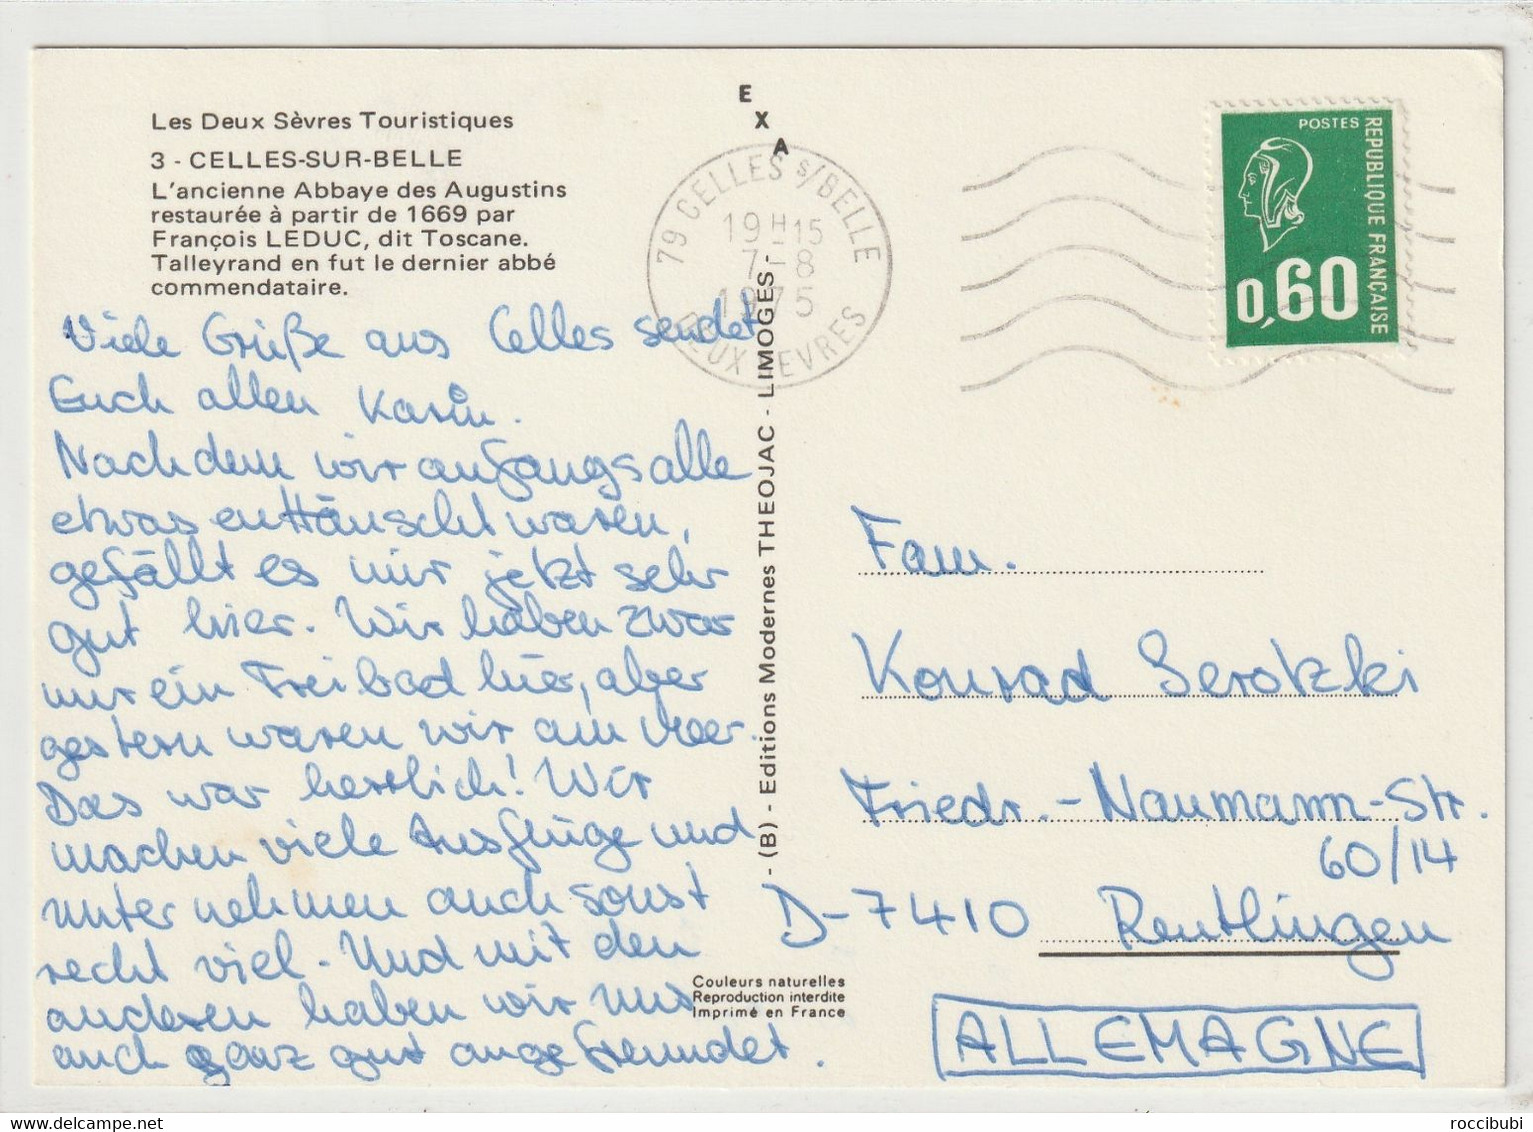 Les Deux Sèvres Touristiques
3 - CELLES-SUR-BELLE
L'ancienne Abbaye des Augustins
restaurée à partir de 1669 par
François LEDUC, dit Toscane.
Talleyrand en fut le dernier abbé
commendataire.
Viele Grüße aus Celles sendet
Euch allen Karin.
Nachdem wir anfangs alle
etwas enttäuscht waren,
gefällt es mir jetzt sehr
gut hier. Wir haben zwar
nur ein Freibad hier, aber
gestern waren wir am Meer.
Das war herrlich! Wir
machen viele Ausflüge und
unternehmen auch sonst
recht viel. Und mit den
anderen haben wir uns
auch ganz gut angefreundet.
EXA
79 CELLES S/BELLE
19H15
7-8
1975
DEUX SEVRES
- (B) - Editions Modernes THEOJAC - LIMOGES -
POSTES
REPUBLIQUE FRANÇAISE
0,60
Fam.
Konrad Serotzki
Friedr.-Naumann-Str.
60/14
D-7410 Reutlingen
ALLEMAGNE
Couleurs naturelles
Reproduction interdite
Imprimé en France
delcampe.net
roccibubi